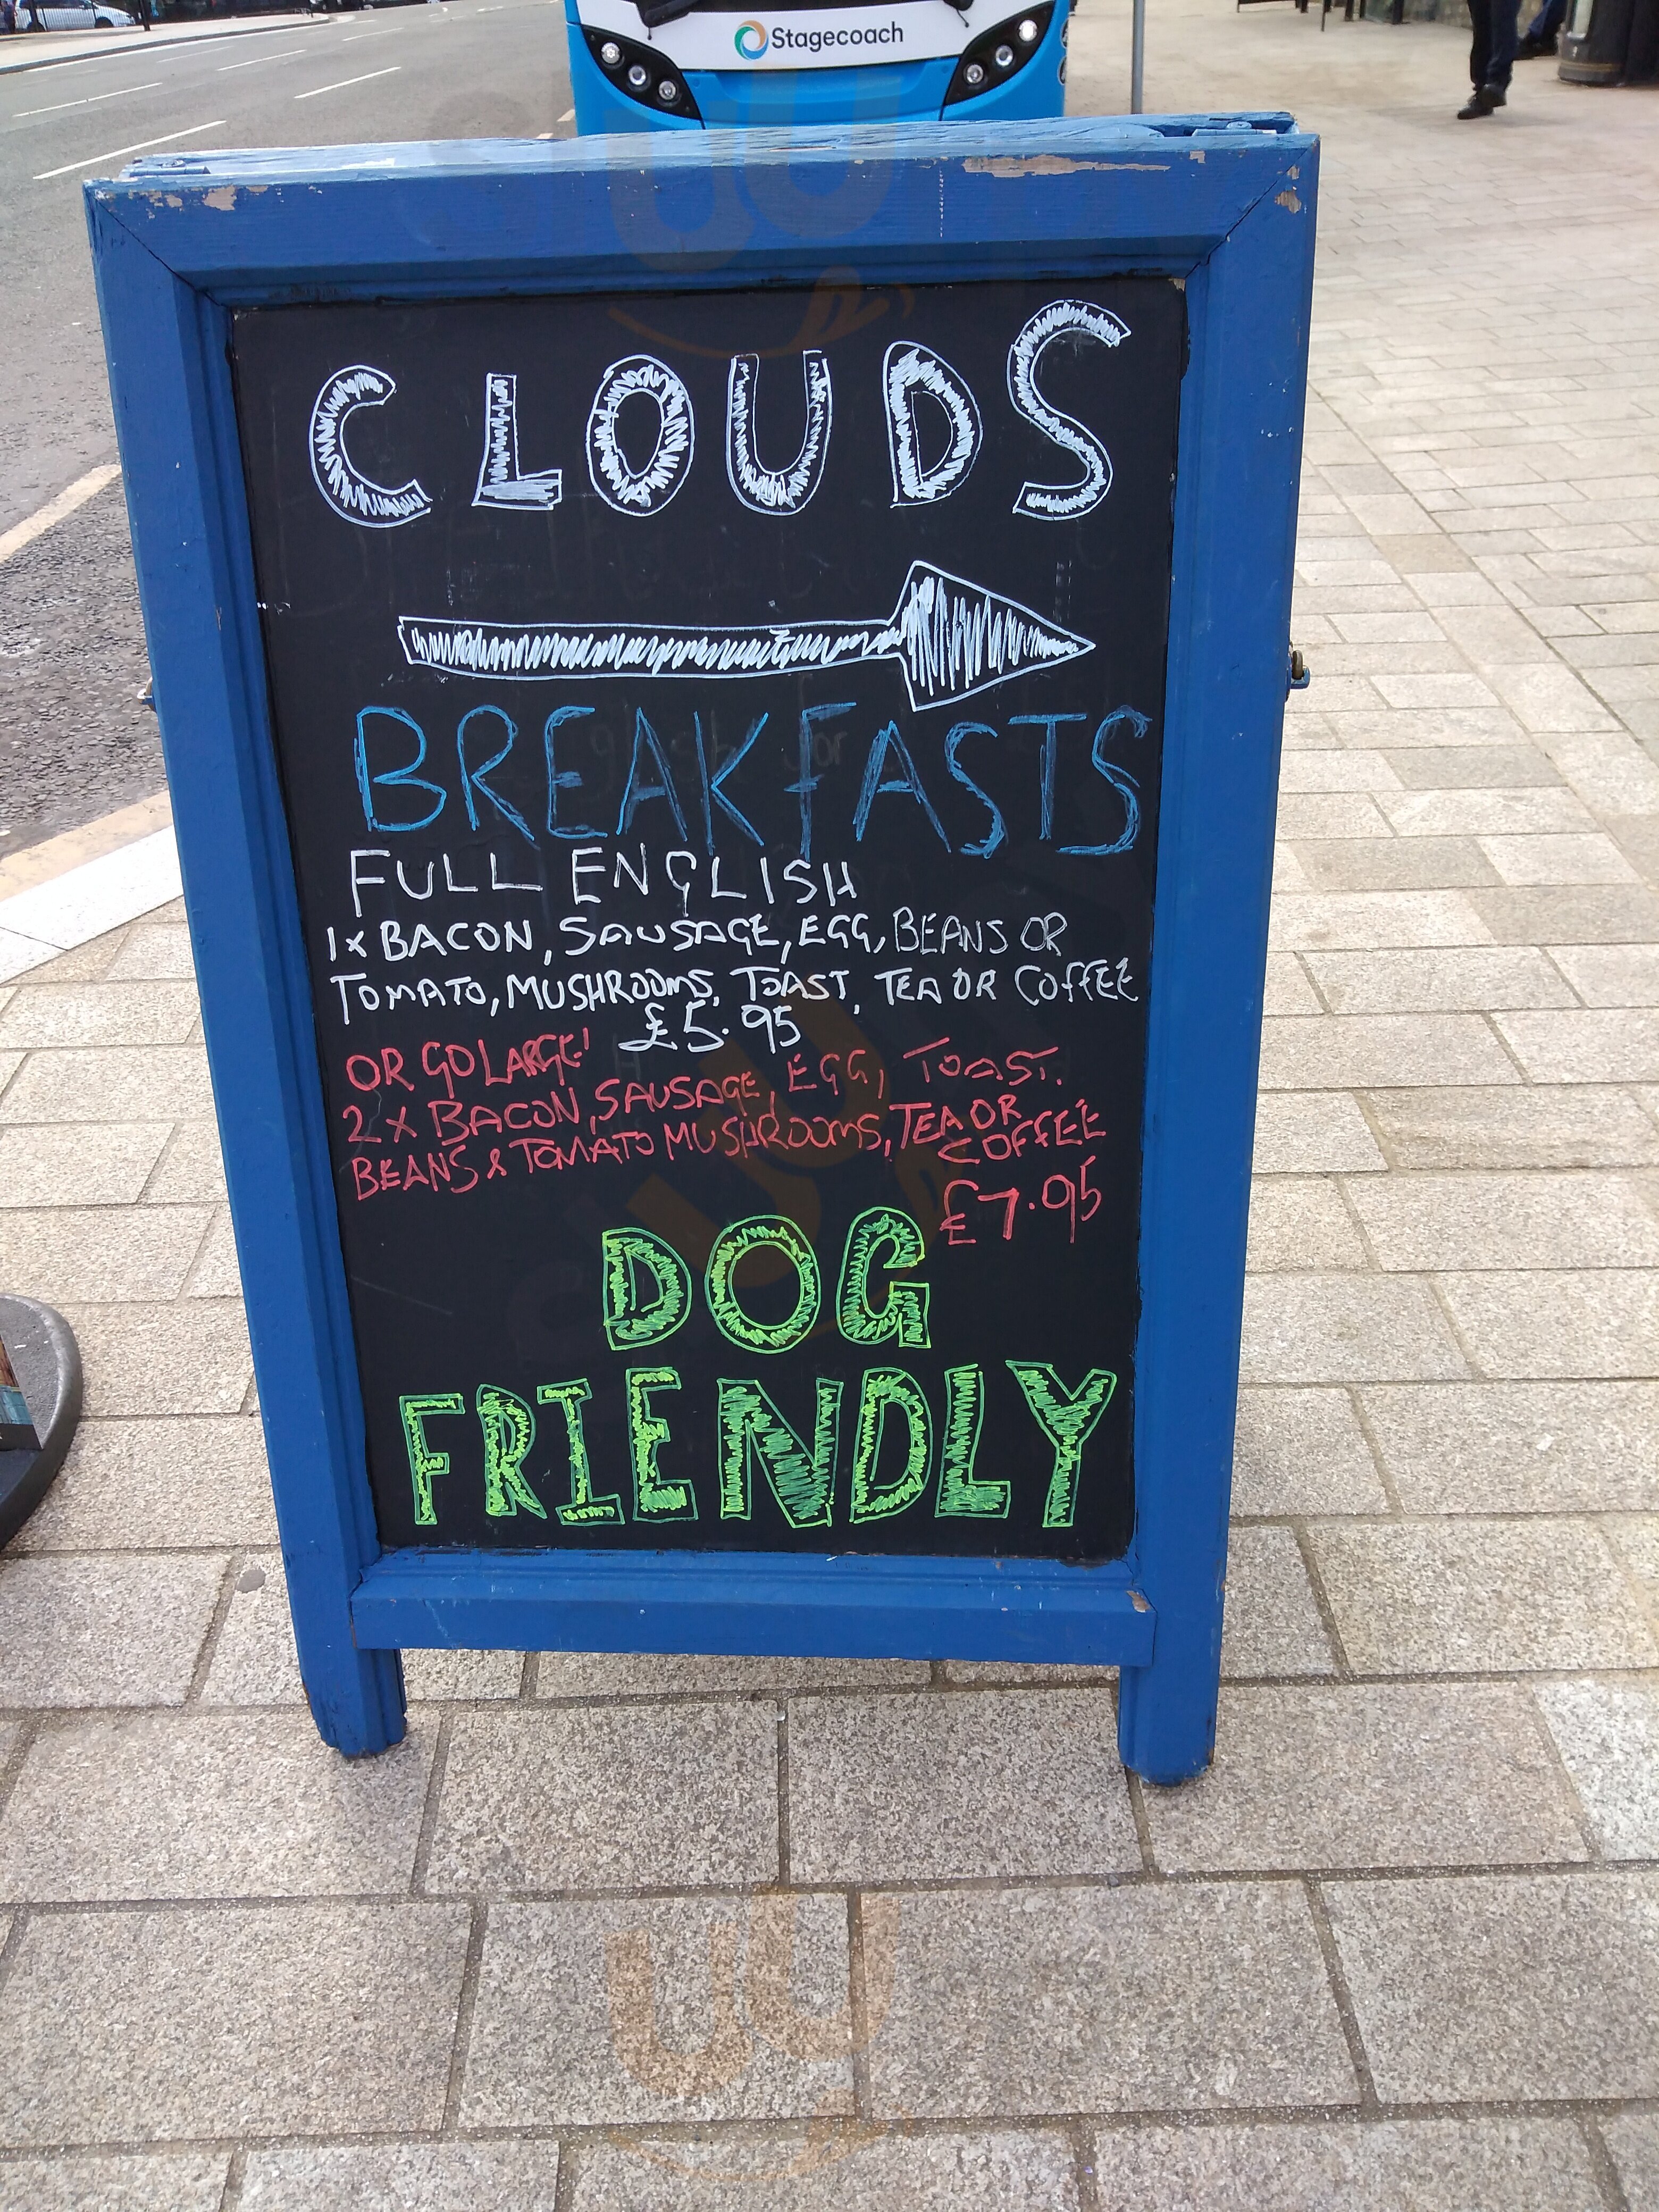 Stagecoach
CLOUDS
BREAKFASTS
FULL ENGLISH
1x BACON, SAUSAGE, EGG, BEANS OR
TOMATO, MUSHROOMS, TOAST, TEA OR COFFEE
£5.95
OR GO LARGE!
2 x BACON, SAUSAGE, EGG, TOAST.
BEANS & TOMATO MUSHROOMS, TEA OR
COFFEE
£7.95
DOG
FRIENDLY